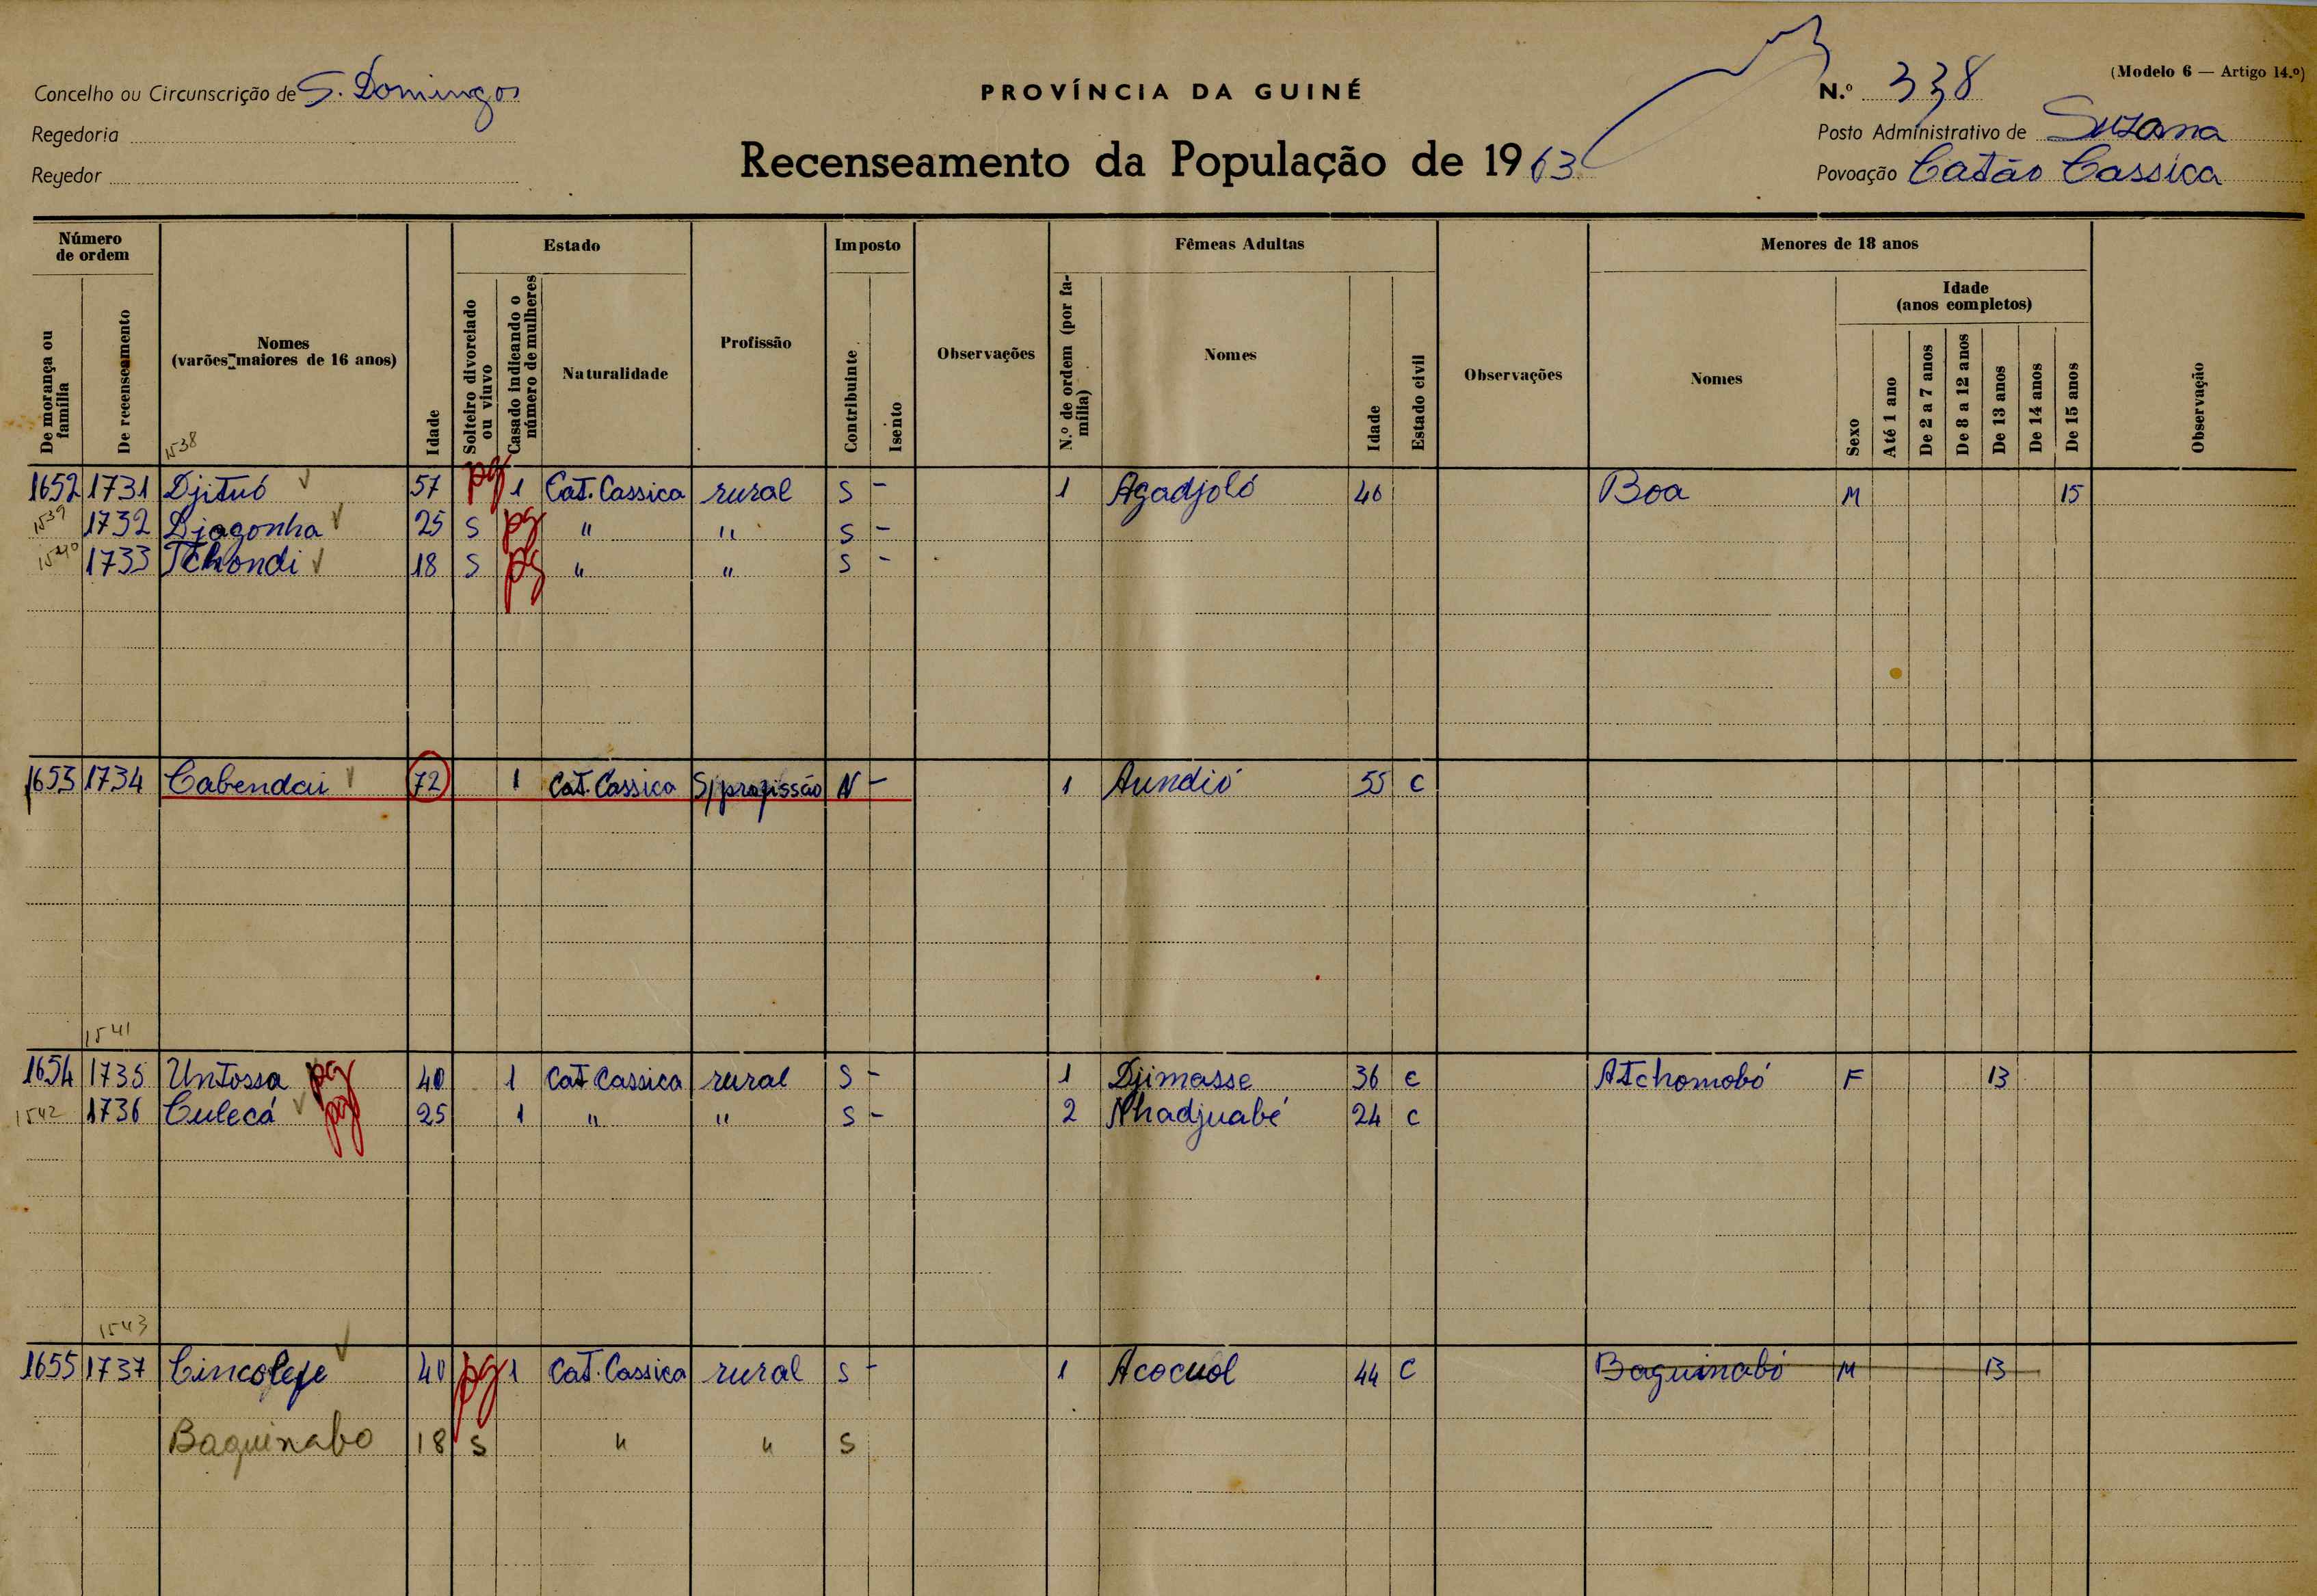 (Modelo 6 — Artigo 14.º)
Concelho ou Circunscrição de S. Domingos
PROVÍNCIA DA GUINÉ
N.º 338
Regedoria
Posto Administrativo de Suzana
Recenseamento da População de 1963
Regedor
Povoação Catão Cassica
Número de ordem
Estado
Imposto
Fêmeas Adultas
Menores de 18 anos
De morança ou família
De recenseamento
Nomes (varões maiores de 16 anos)
Idade
Solteiro divorciado ou viuvo
Casado indicando o número de mulheres
Naturalidade
Profissão
Contribuinte
Isento
Observações
N.º de ordem (por família)
Nomes
Idade
Estado civil
Observações
Nomes
Sexo
Idade (anos completos)
Até 1 ano
De 2 a 7 anos
De 8 a 12 anos
De 13 anos
De 14 anos
De 15 anos
Observação
1538
1652 1731 Djituó 57 pg 1 Cat. Cassica rural S - 1 Agadjoló 46 Boa M 15
1539 1732 Djagonha 25 S pg " " S -
1540 1733 Tchondi 18 S pg " " S -
1653 1734 Cabendai 72 1 Cat. Cassica S/profissão N - 1 Aundió 55 C
1541
1654 1735 Untossa pg 40 1 Cat Cassica rural S - 1 Djimasse 36 C Atchomobó F 13
1542 1736 Culecá pg 25 1 " " S - 2 Nhadjuabé 24 C
1543
1655 1737 Cincolefe 40 pg 1 Cat. Cassica rural S - 1 Acocuol 44 C Baguinabó M 13
Baguinabo 18 S " " S